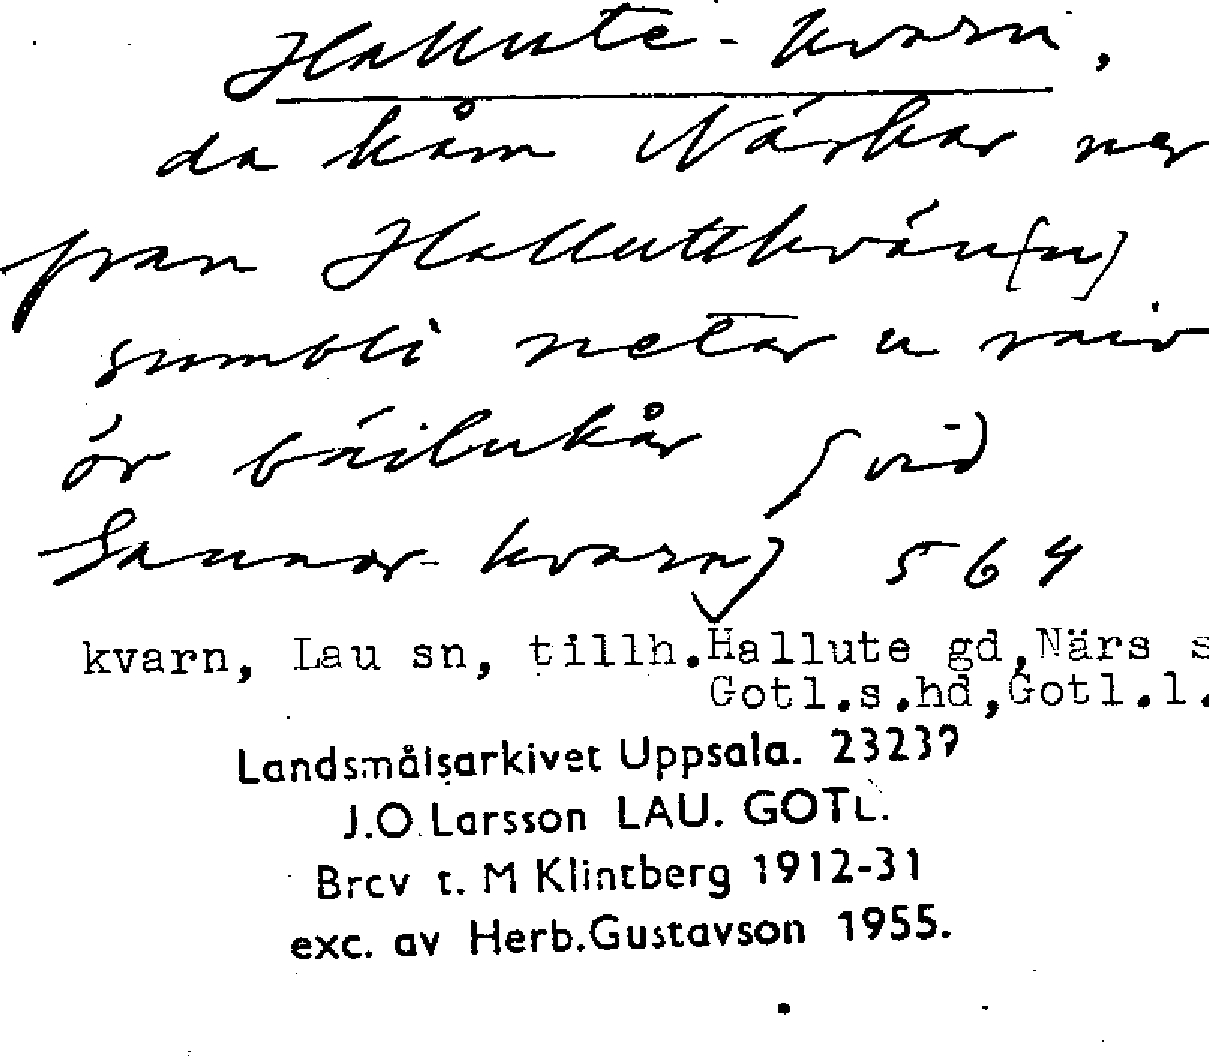 Hallute-kvarn,
da kåm Närkar ner
fran Halluttkván[n]
sumbli netar u raiv
ór báilukår (vid
Sannar-kvarn) 564
kvarn, Lau sn, tillh. Hallute gd, Närs s
Gotl.s.hd, Gotl.l.
Landsmålsarkivet Uppsala. 23239
J.O. Larsson LAU. GOTL.
Brev t. M Klintberg 1912-31
exc. av Herb. Gustavson 1955.